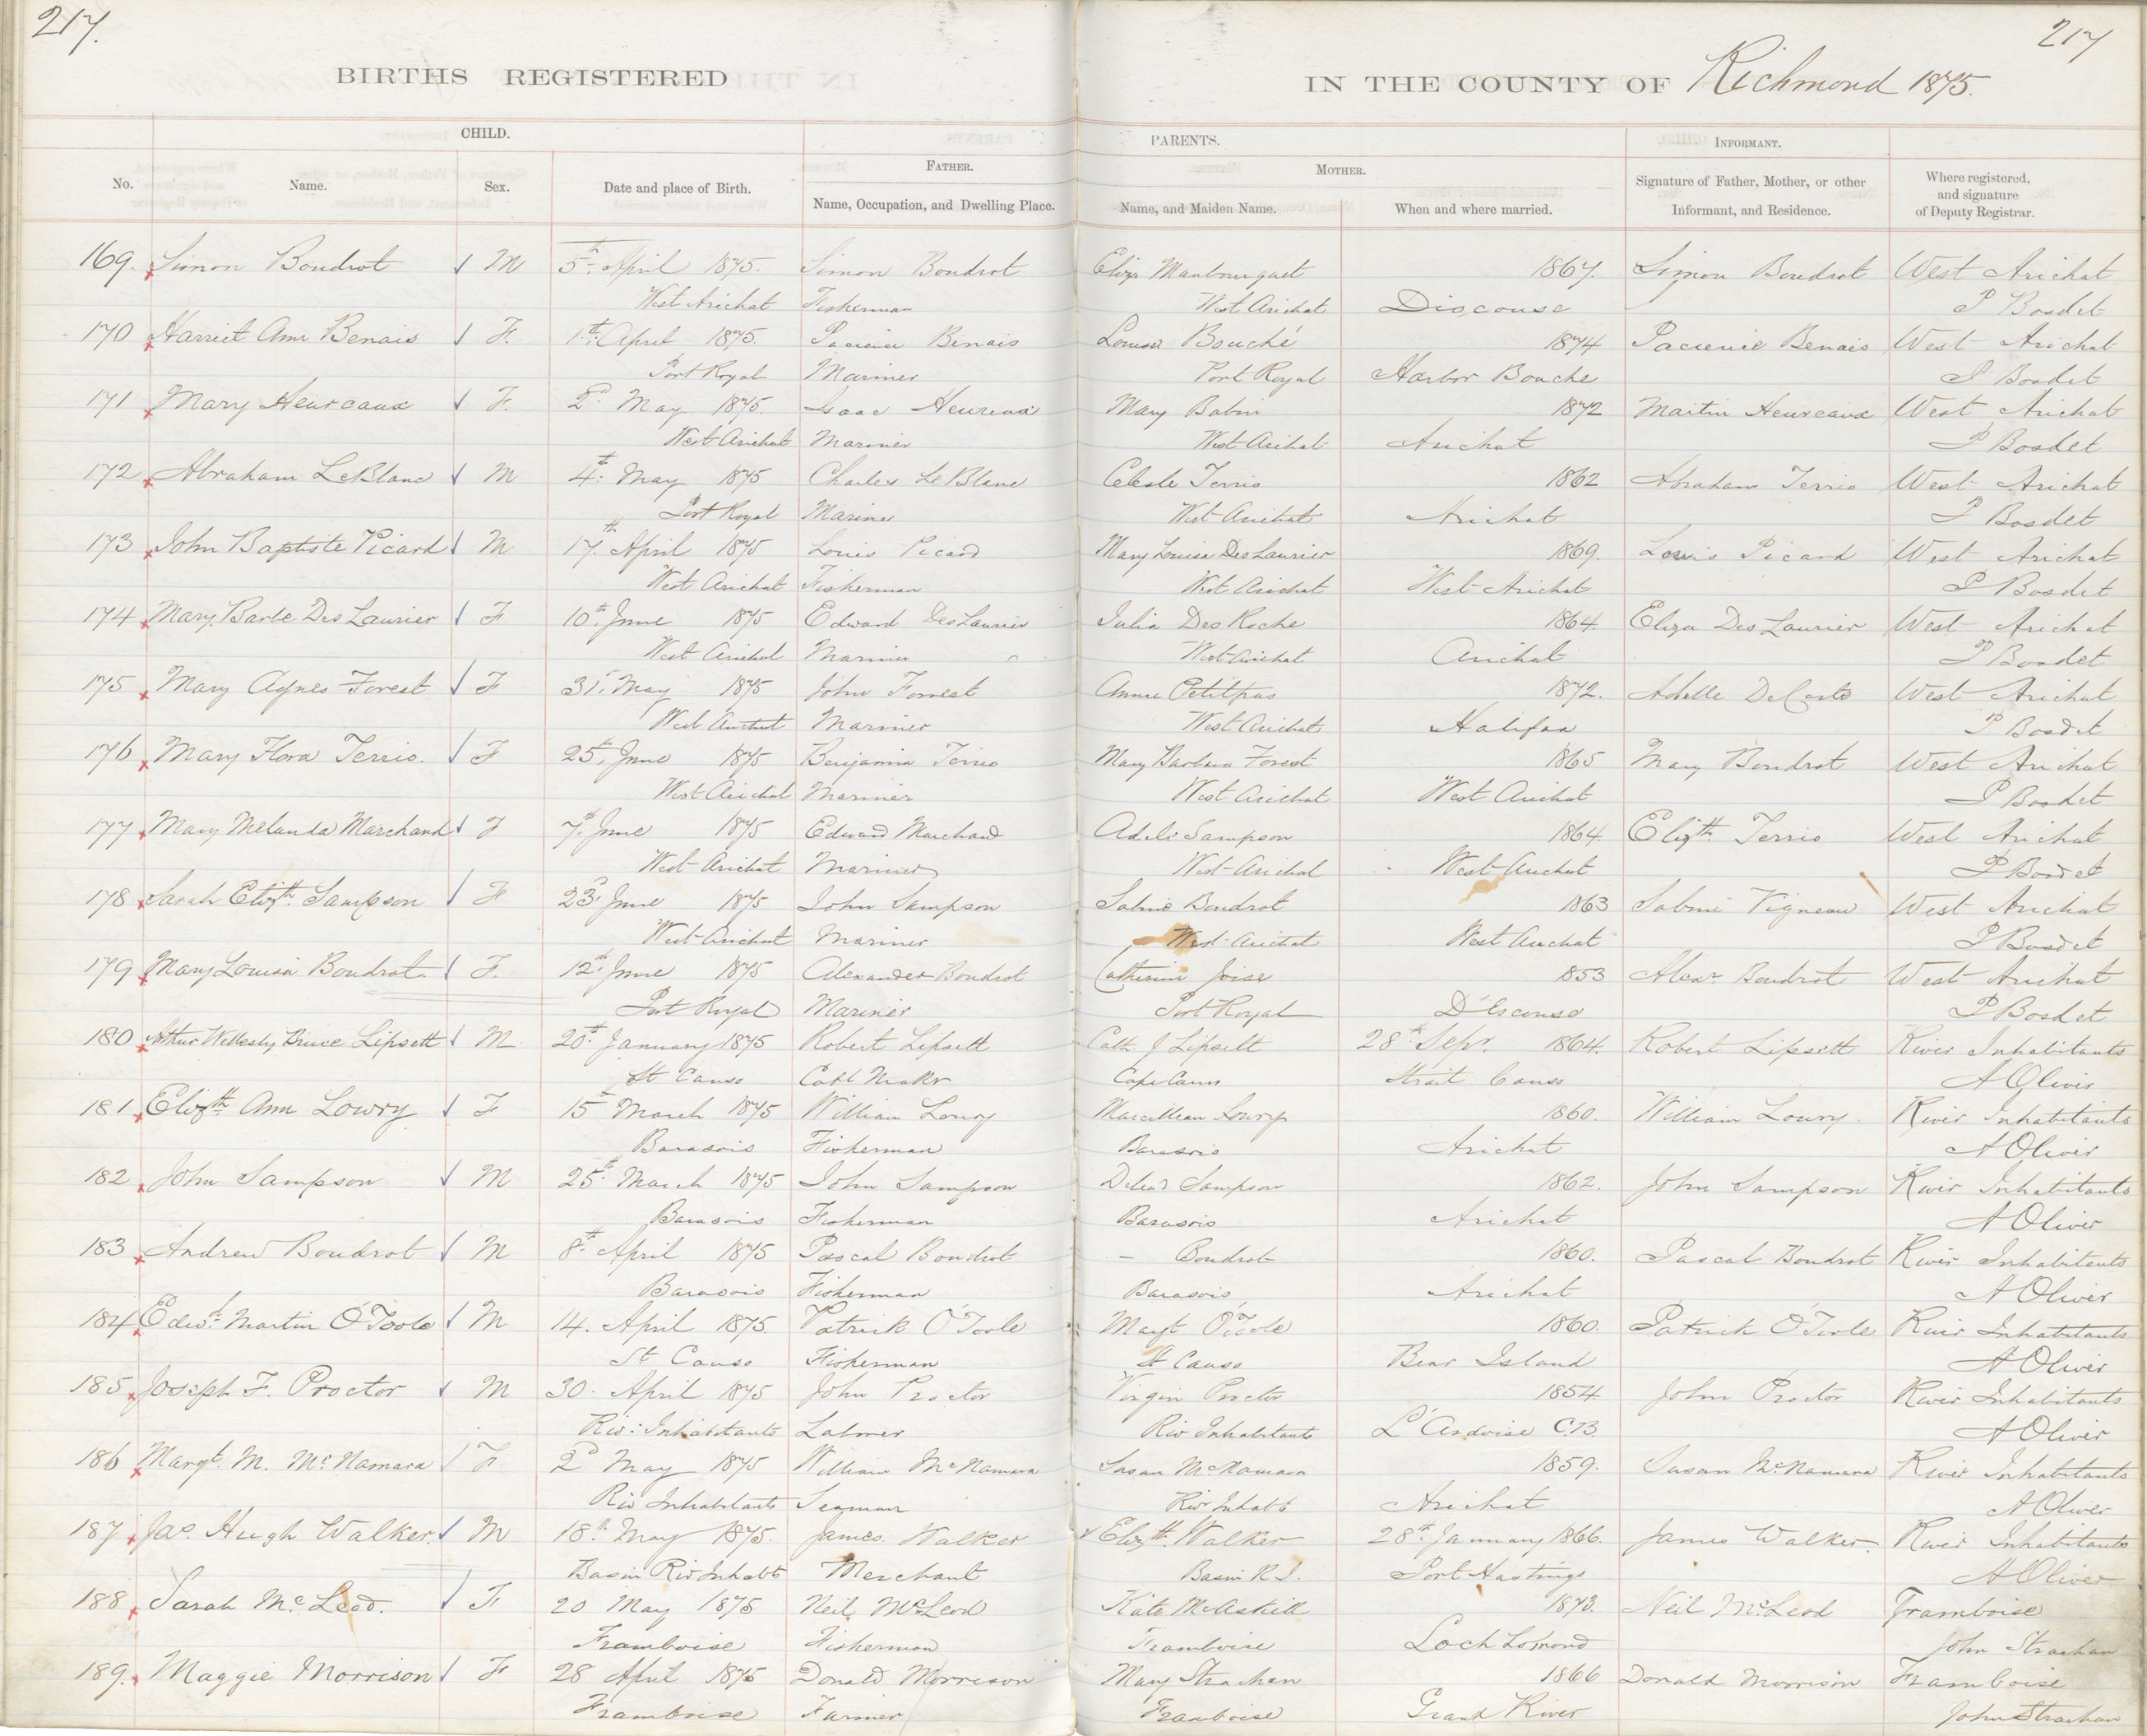 217.
217
BIRTHS REGISTERED
IN THE COUNTY OF Richmond 1875.
CHILD.
PARENTS.
INFORMANT.
No.
Name.
Sex.
Date and place of Birth.
FATHER.
Name, Occupation, and Dwelling Place.
MOTHER.
Name, and Maiden Name.
When and where married.
Signature of Father, Mother, or other
Informant, and Residence.
Where registered,
and signature
of Deputy Registrar.
169. Simon Boudrot M 5th April 1875. Simon Boudrot Eliza 1867. Simon Boudrot West Arichat
West Arichat Fisherman West Arichat Discouse P Bosdet
170 Harriet Ann Benais F. 1st April 1875. Benais Louisa Bouché 1874 Benais West Arichat
Port Royal Mariner Port Royal Harbor Bouche P Bosdet
171 Mary Heureaux F. 2d May 1875. Isaac Heureaux Mary Babin 1872 Martin Heureaux West Arichat
West Arichat Mariner West Arichat Arichat P Bosdet
172 Abraham LeBlanc M 4th May 1875 Charles LeBlanc Celeste Terrio 1862 Abraham Terrio West Arichat
Port Royal Mariner West Arichat Arichat P Bosdet
173 John Baptiste Picard M 17th April 1875 Louis Picard Mary Louisa DesLaurier 1869. Louis Picard West Arichat
West Arichat Fisherman West Arichat West Arichat P Bosdet
174 Mary Barbe Des Laurier F 10th June 1875 Edward DesLaurier Julia Des Roche 1864. Eliza Des Laurier West Arichat
West Arichat Mariner West Arichat Arichat P Bosdet
175 Mary Agnes Forest F 31st May 1875 John Forrest Annie Petitpas 1872. Adelle DeCoste West Arichat
West Arichat Mariner West Arichat Halifax P Bosdet
176 Mary Flora Terrio. F 25th June 1875 Benjamin Terrio Mary Barbara Forest 1865 Mary Boudrot West Arichat
West Arichat Mariner West Arichat West Arichat P Bosdet
177 Mary Melanda Marchand F 7th June 1875 Edward Marchand Adele Sampson 1864. Elizth Terrio West Arichat
West Arichat Mariner West Arichat West Arichat P Bosdet
178 Sarah Elizth Sampson F 23d June 1875 John Sampson Sabine Boudrot 1863 Sabine Vigneau West Arichat
West Arichat Mariner West Arichat West Arichat P Bosdet
179 Mary Louisa Boudrot F. 12th June 1875 Alexander Boudrot Catherine Joise 1853 Alexr Boudrot West Arichat
Port Royal Mariner Port Royal D'Escouse P Bosdet
180 Arthur Wellesly Bruce Lipsett M. 20th January 1875 Robert Lipsett Cath J Lipsett 28th Sepr. 1864. Robert Lipsett River Inhabitants
St Canso Cabt Makr Strait Canso A Oliver
181 Elizth Ann Lowry F 15th March 1875 William Lowry Lowry 1860. William Lowry River Inhabitants
Barasois Fisherman Barasois Arichat A Oliver
182 John Sampson M 25th March 1875 John Sampson Sampson 1862. John Sampson River Inhabitants
Barasois Fisherman Barasois Arichat A Oliver
183 Andrew Boudrot M 8th April 1875 Pascal Boudrot — Boudrot 1860. Pascal Boudrot River Inhabitants
Barasois Fisherman Barasois Arichat A Oliver
184 Edwd. Martin O'Toole M 14. April 1875. Patrick O'Toole Magt O'Toole 1860. Patrick O'Toole River Inhabitants
St Canso Fisherman St Canso Bear Island A Oliver
185 Joseph F. Proctor M 30. April 1875 John Proctor Virgin Proctor 1854 John Proctor River Inhabitants
Riv: Inhabitants Labrer Riv Inhabitants L'Ardoise CB A Oliver
186 Margt. M. McNamara F 2d May 1875 William McNamara Susan McNamara 1859. Susan McNamara River Inhabitants
Riv Inhabitants Seaman Rivr Inhabts Arichat A Oliver
187 Jas. Hugh Walker. M 18th May 1875. James Walker Elizth. Walker 28th January 1866. James Walker. River Inhabitants
Basin Riv Inhabts Merchant Basin R. I. Port Hastings A Oliver
188 Sarah McLeod. F 20 May 1875 Neil McLeod Kate McAskill 1873. Neil McLeod Framboise
Framboise Fisherman Framboise Loch Lomond John Strachan
189. Maggie Morrison F 28 April 1875 Donald Morrison Mary Strachan 1866 Donald Morrison Framboise
Framboise Farmer Framboise Grand River John Strachan